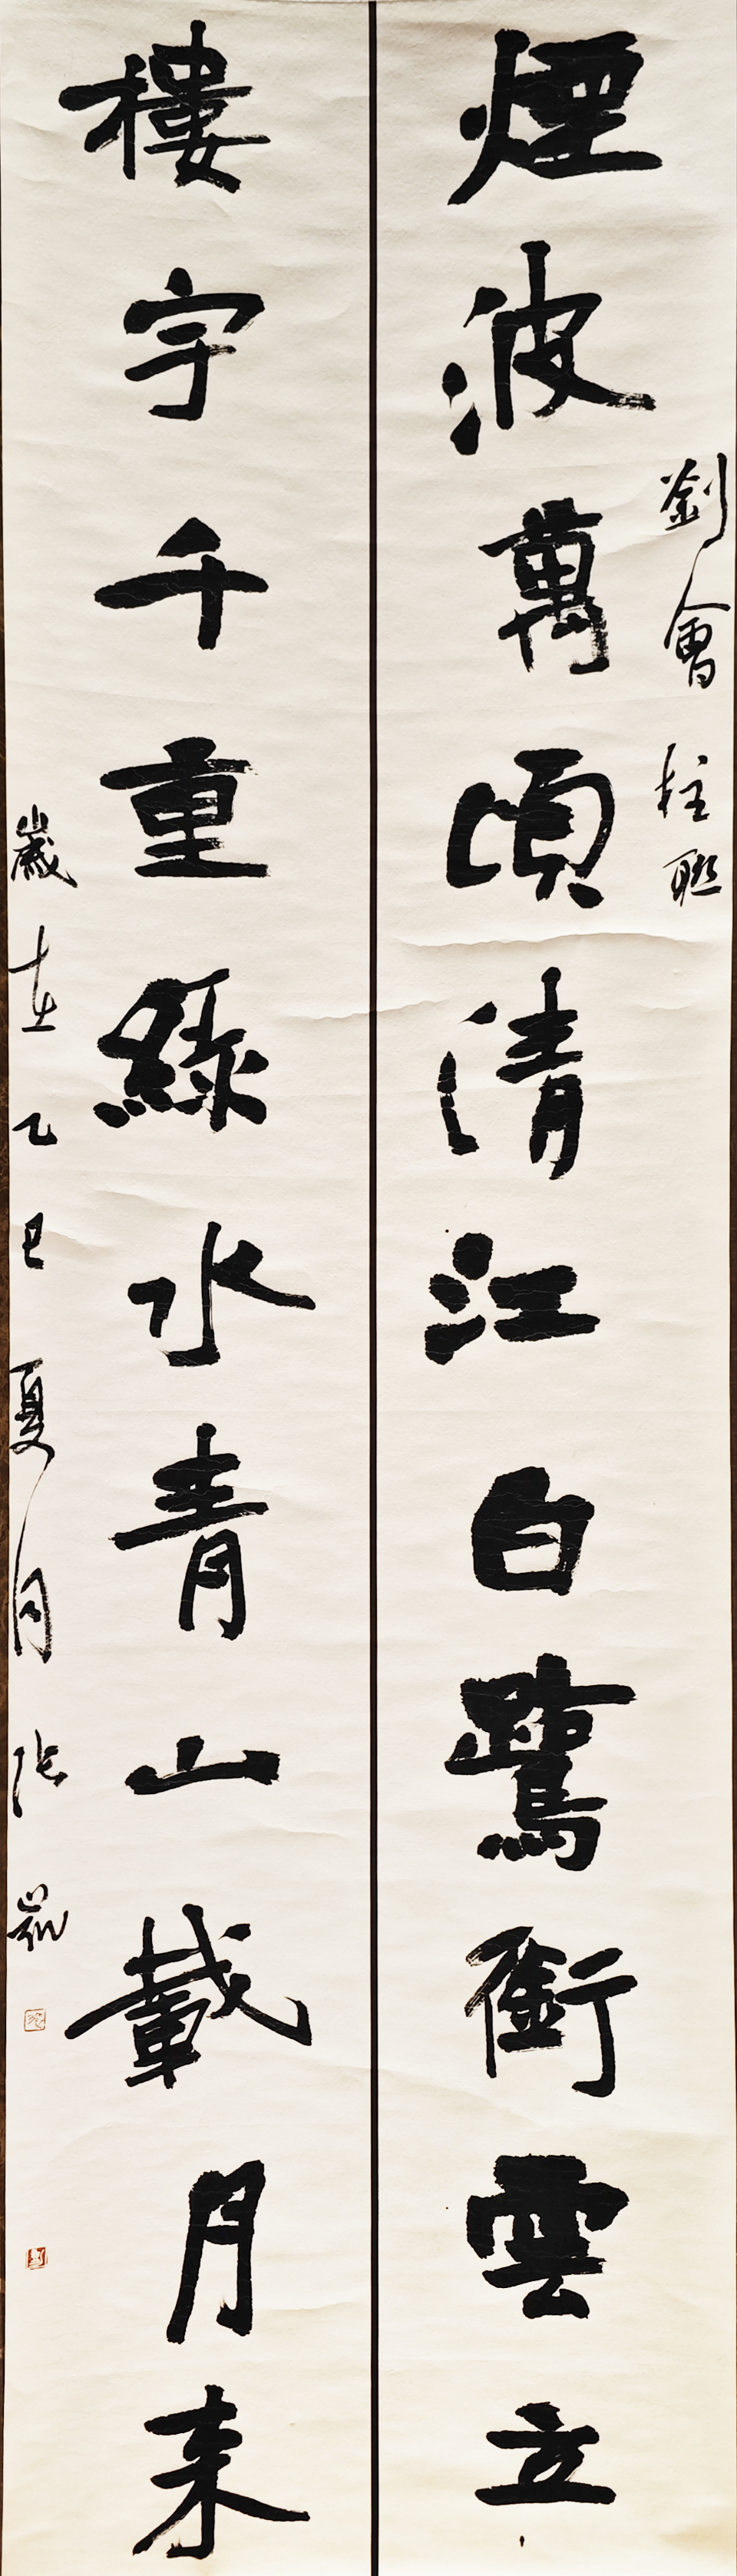 煙波萬頃清江白鷺銜雲立
劉會柱聯
樓宇千重綠水青山載月来
歲在乙巳夏月張